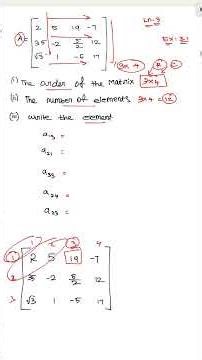 A = [ 2 5 19 -7
35 -2 5/2 12
√3 1 -5 17 ]
3x4
(i) The order of the matrix 3x4
(ii) The number of elements 3x4 = 12
(iii) write the element
a₁₃ =
a₂₁ =
a₃₃ =
a₂₄ =
a₂₃ =
1 2 3 4
1 2 5 19 -7
2 35 -2 5/2 12
3 √3 1 -5 17